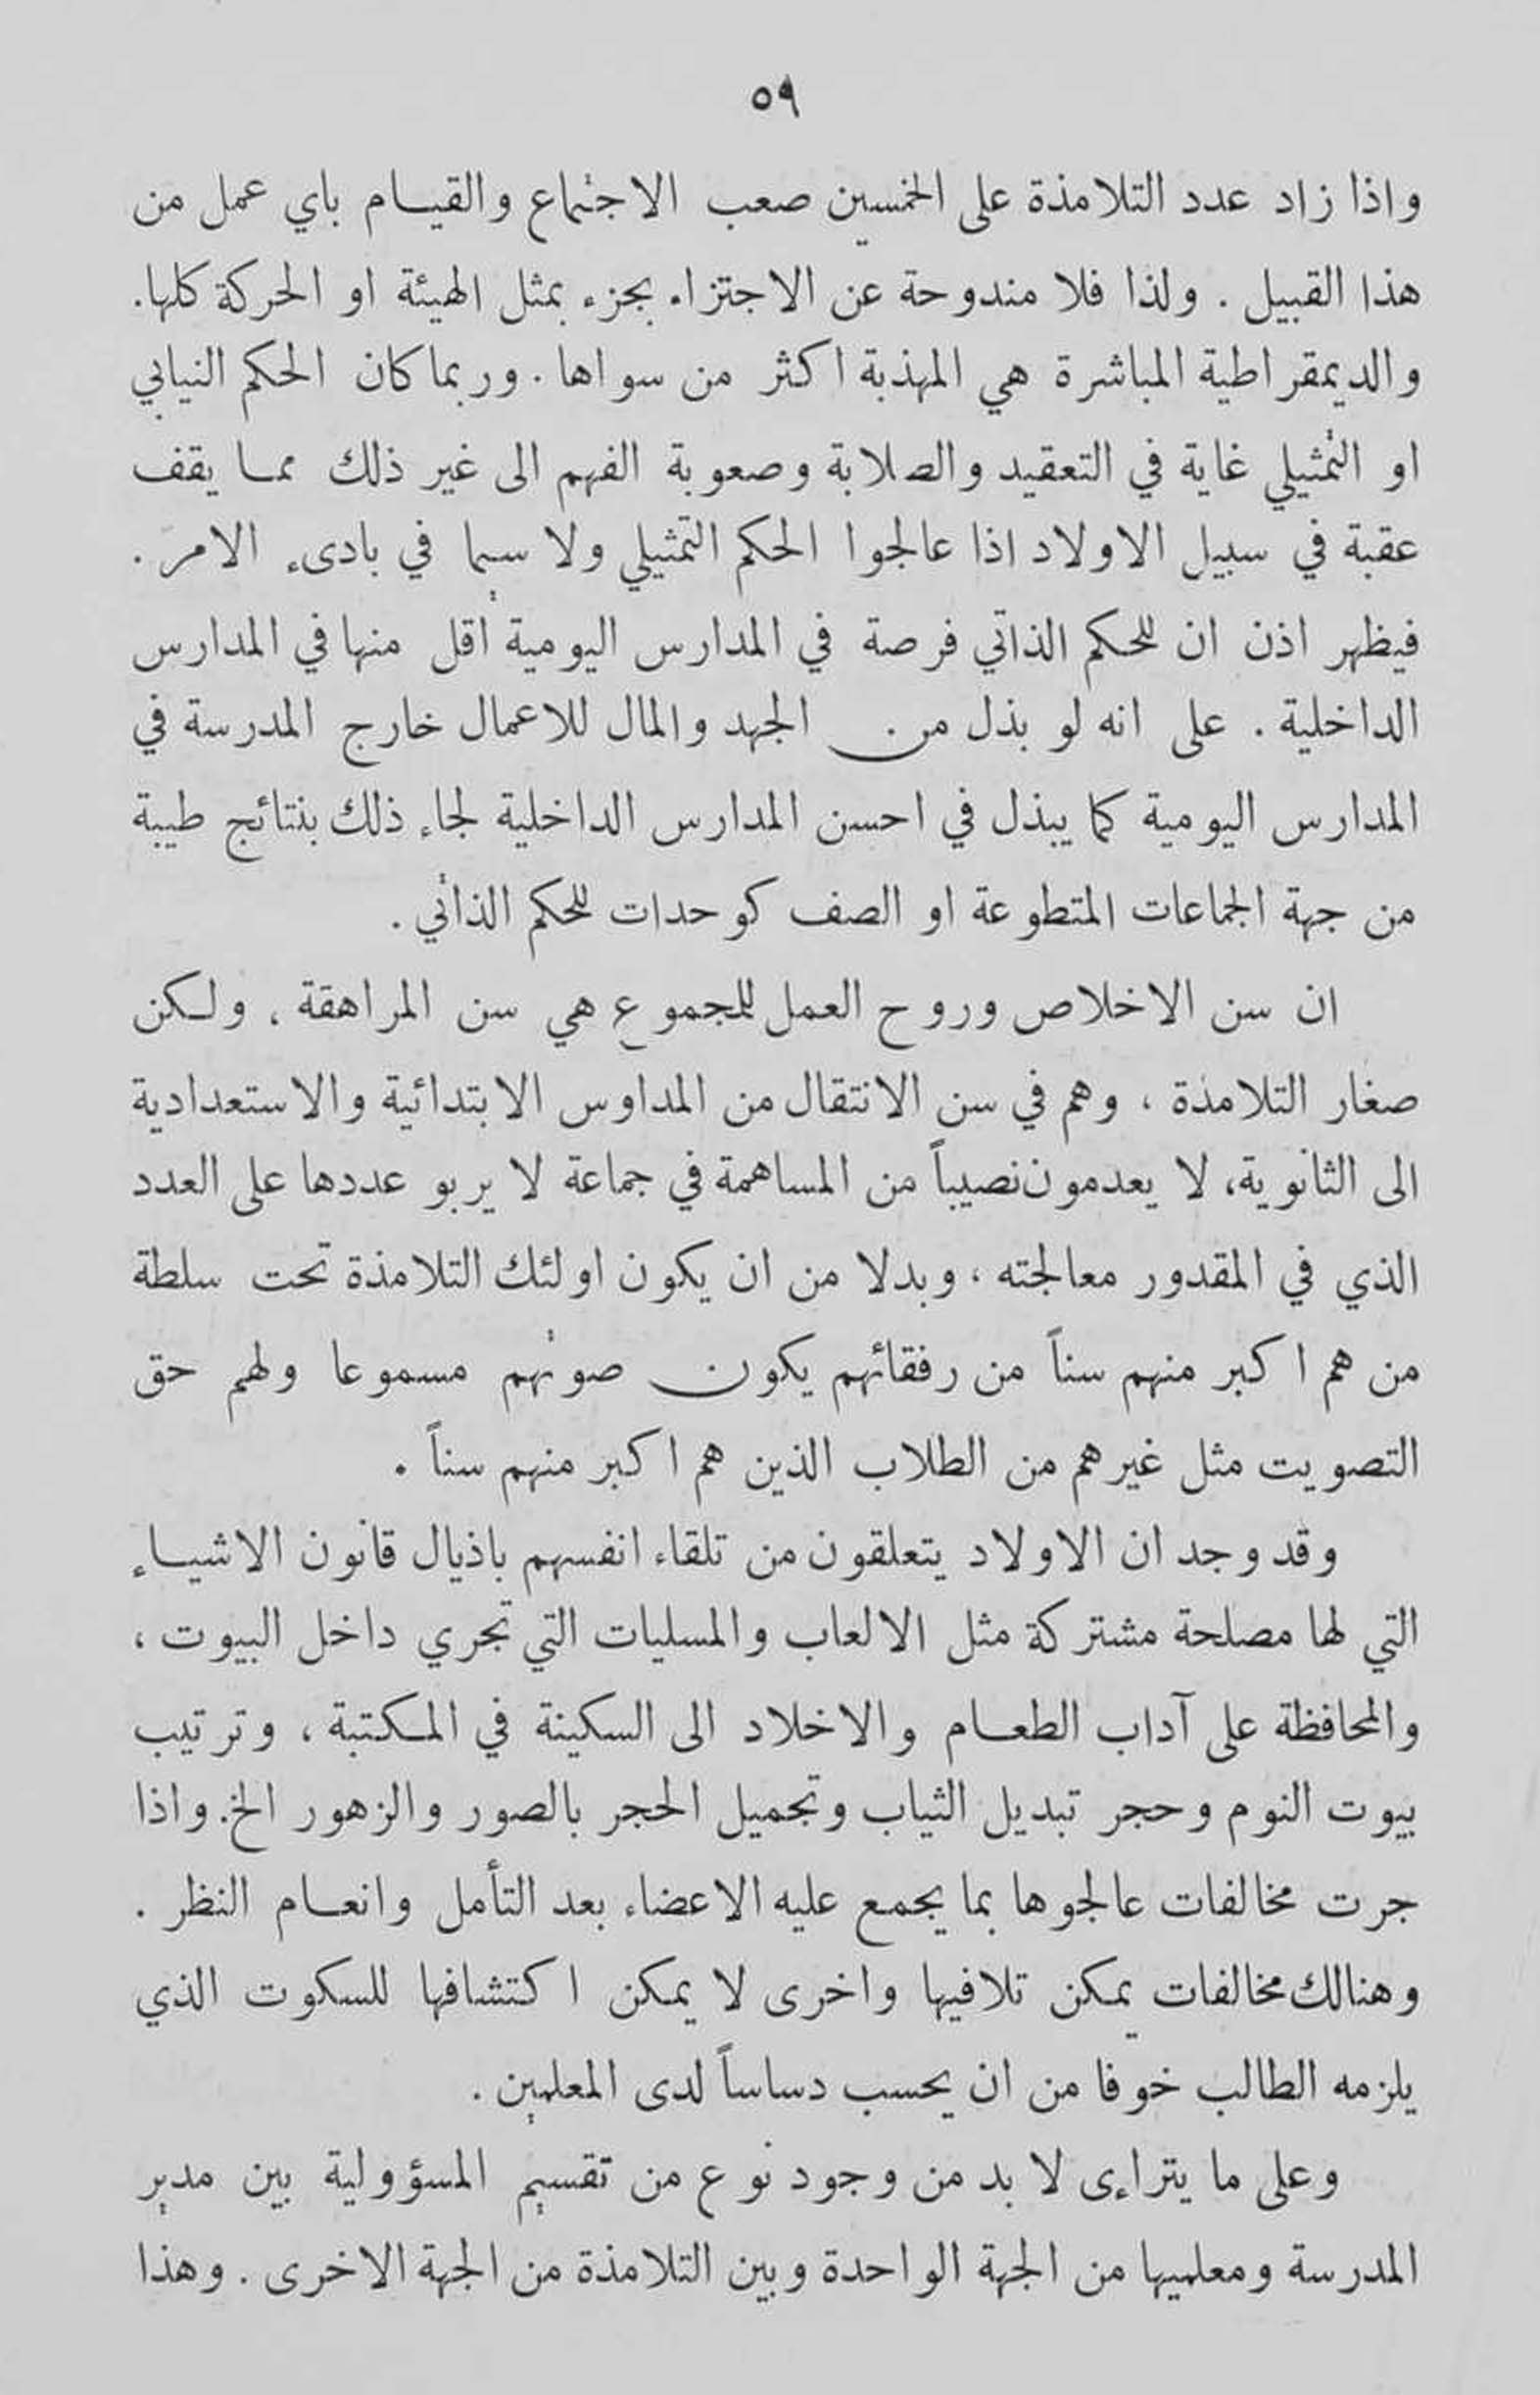 ٥٩
واذا زاد عدد التلامذة على الخمسين صعب الاجتماع والقيام باي عمل من
هذا القبيل . ولذا فلا مندوحة عن الاجتزاء بجزء يمثل الهيئة او الحركة كلها.
والديمقراطية المباشرة هي المهذبة اكثر من سواها . وربما كان الحكم النيابي
او التمثيلي غاية في التعقيد والصلابة وصعوبة الفهم الى غير ذلك مما يقف
عقبة في سبيل الاولاد اذا عالجوا الحكم التمثيلي ولا سيما في بادىء الامر .
فيظهر اذن ان للحكم الذاتي فرصة في المدارس اليومية اقل منها في المدارس
الداخلية . على انه لو بذل من الجهد والمال للاعمال خارج المدرسة في
المدارس اليومية كما يبذل في احسن المدارس الداخلية لجاء ذلك بنتائج طيبة
من جهة الجماعات المتطوعة او الصف كوحدات للحكم الذاتي .
ان سن الاخلاص وروح العمل للمجموع هي سن المراهقة ، ولكن
صغار التلامذة ، وهم في سن الانتقال من المداوس الابتدائية والاستعدادية
الى الثانوية، لا يعدمون نصيباً من المساهمة في جماعة لا يربو عددها على العدد
الذي في المقدور معالجته ، وبدلا من ان يكون اولئك التلامذة تحت سلطة
من هم اكبر منهم سناً من رفقائهم يكون صوتهم مسموعا ولهم حق
التصويت مثل غيرهم من الطلاب الذين هم اكبر منهم سناً .
وقد وجد ان الاولاد يتعلقون من تلقاء انفسهم باذيال قانون الاشياء
التي لها مصلحة مشتركة مثل الالعاب والمسليات التي تجري داخل البيوت ،
والمحافظة على آداب الطعام والاخلاد الى السكينة في المكتبة ، وترتيب
بيوت النوم وحجر تبديل الثياب وتجميل الحجر بالصور والزهور الخ. واذا
جرت مخالفات عالجوها بما يجمع عليه الاعضاء بعد التأمل وانعام النظر .
وهنالك مخالفات يمكن تلافيها واخرى لا يمكن اكتشافها للسكوت الذي
يلزمه الطالب خوفا من ان يحسب دساساً لدى المعلمين .
وعلى ما يتراءى لا بد من وجود نوع من تقسيم المسؤولية بين مدير
المدرسة ومعلميها من الجهة الواحدة وبين التلامذة من الجهة الاخرى . وهذا